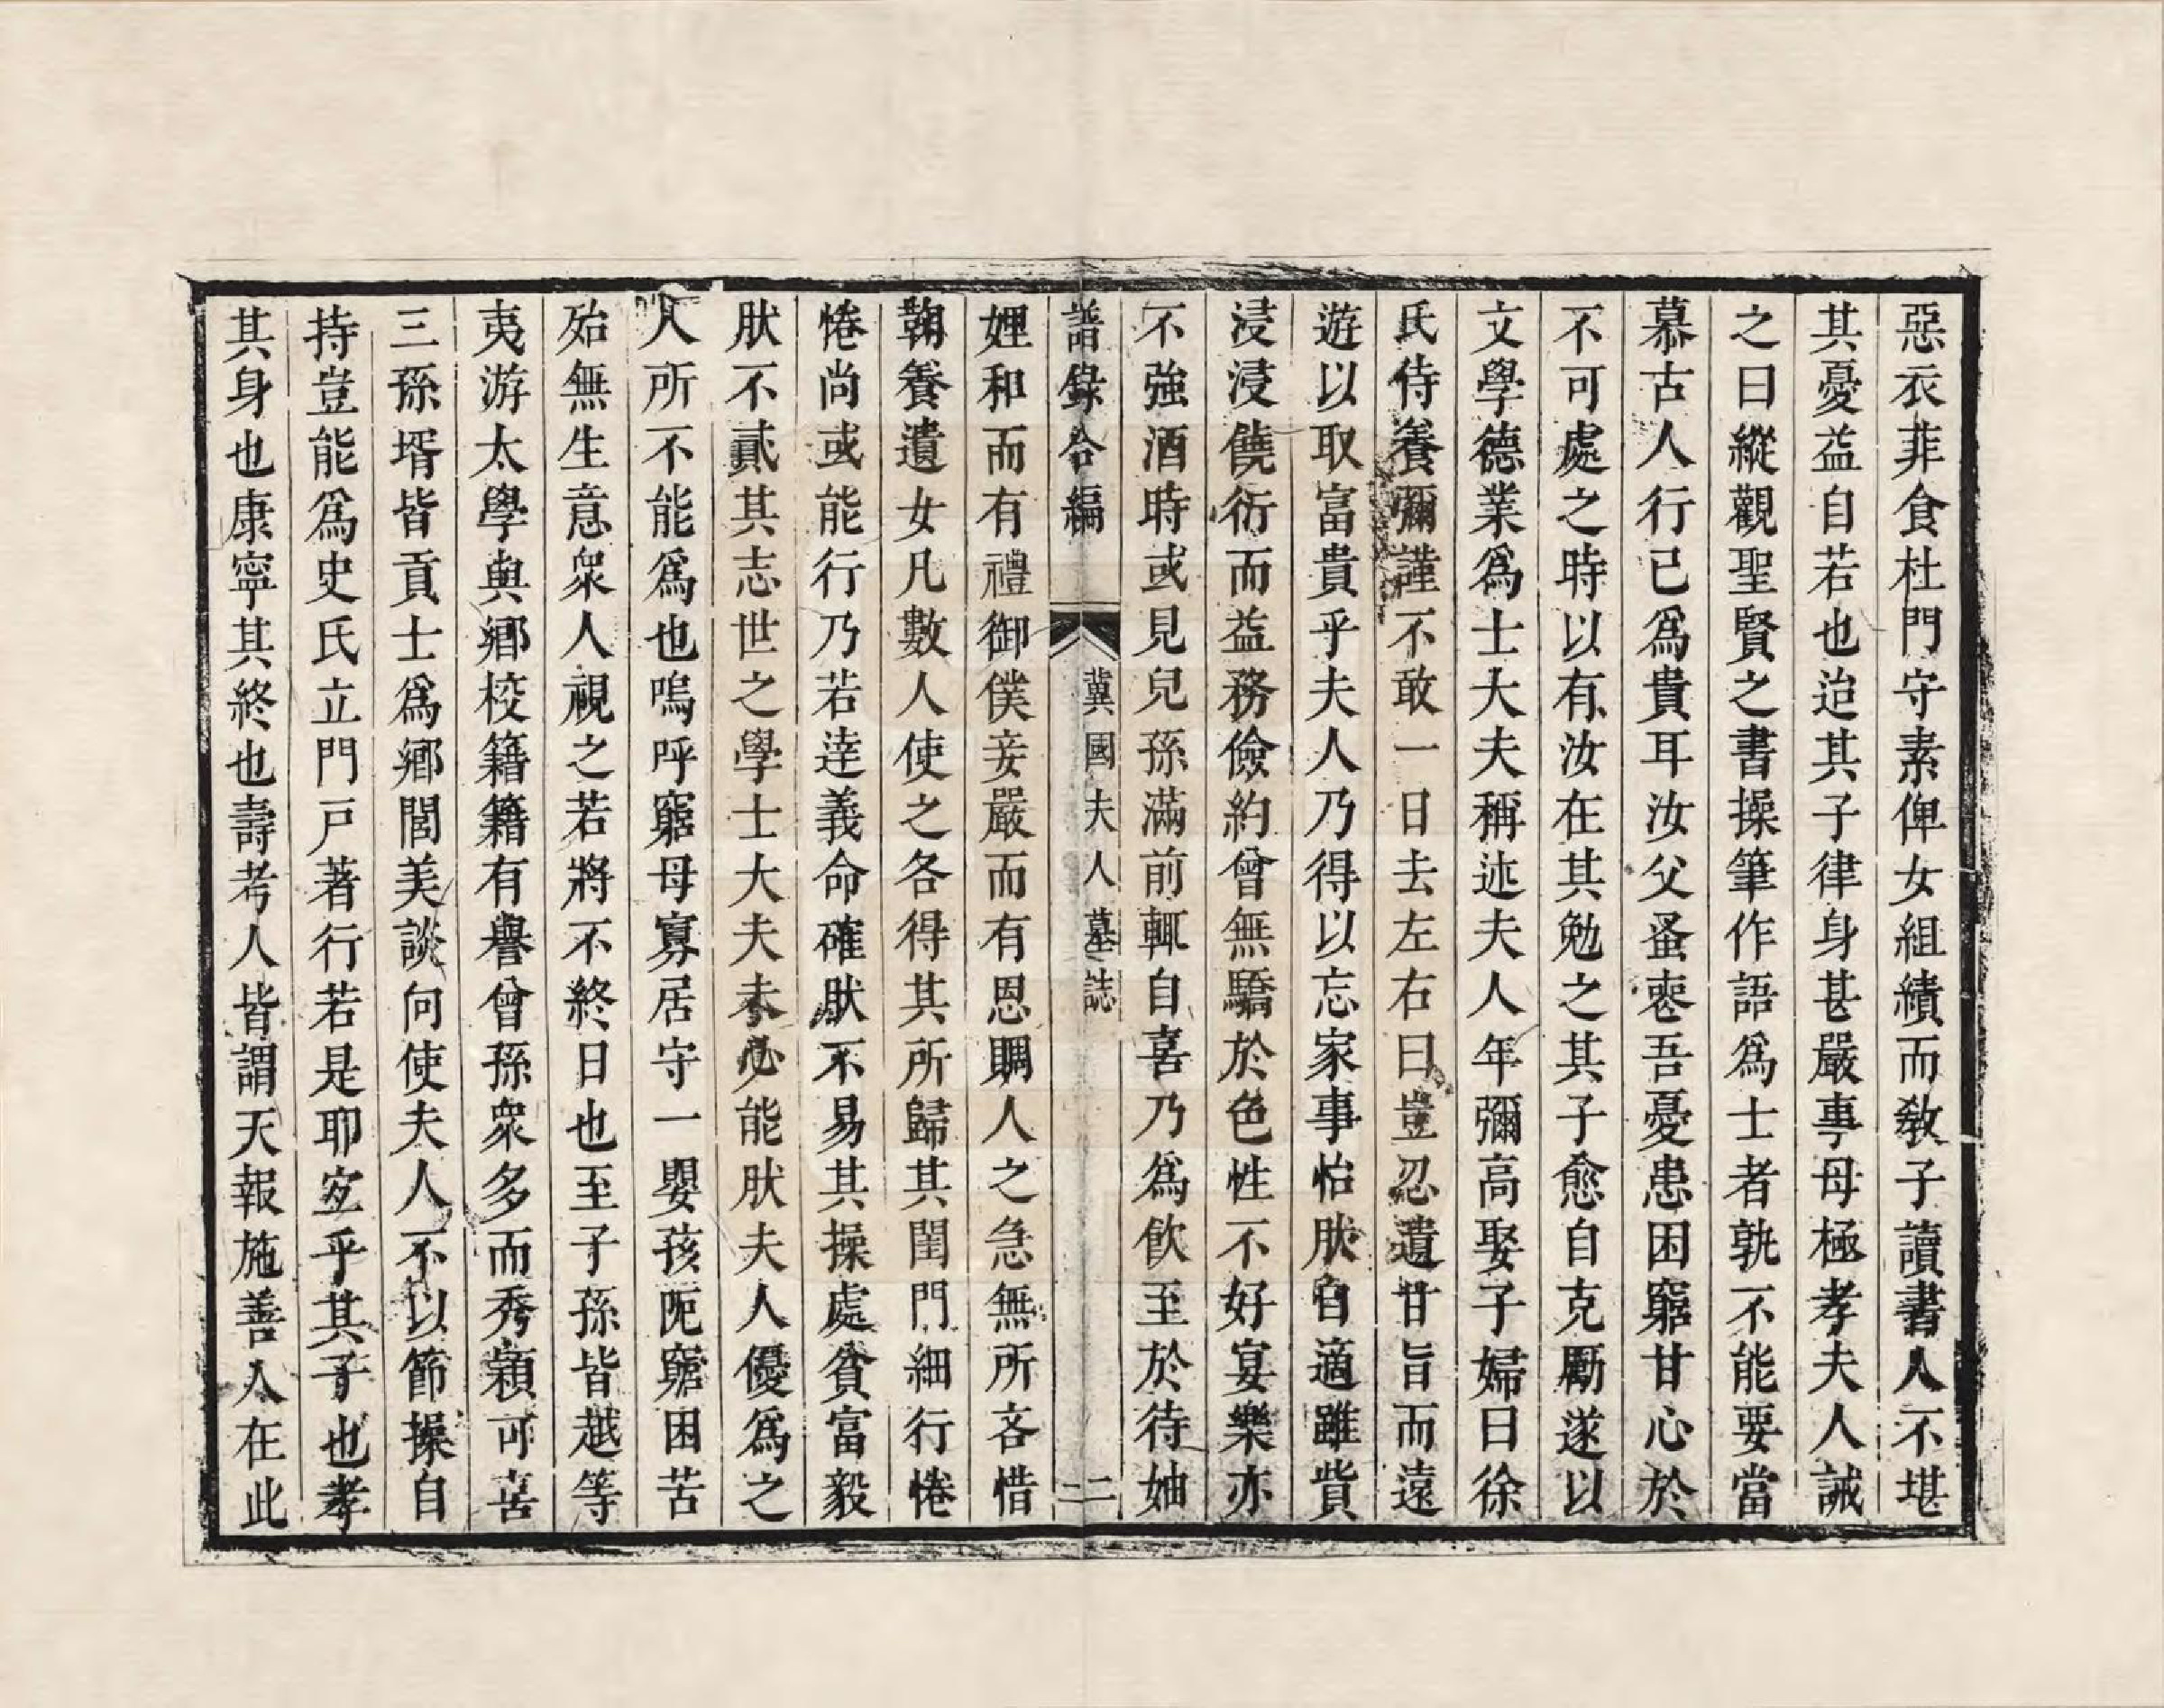 惡衣菲食杜門守素俾女組績而敎子讀書人不堪
其憂益自若也迨其子律身甚嚴事母極孝夫人誡
之曰縱觀聖賢之書操筆作語爲士者孰不能要當
慕古人行已爲貴耳汝父蚤丧吾憂患困窮甘心於
不可處之時以有汝在其勉之其子愈自克勵遂以
文學德業爲士大夫稱述夫人年彌高娶子婦曰徐
氏侍養彌謹不敢一日去左右曰豈忍遺甘旨而遠
遊以取富貴乎夫人乃得以忘家事怡肰自適雖貲
浸浸饒衍而益務儉約曾無驕於色性不好宴樂亦
不強酒時或見兒孫滿前輒自喜乃爲飲至於待妯
譜錄合編 冀國夫人墓誌 二
娌和而有禮御僕妾嚴而有恩賙人之急無所吝惜
鞠養遺女凡數人使之各得其所歸其閨門細行惓
惓尚或能行乃若逹義命確肰不易其操處貧富毅
肰不貳其志世之學士大夫未必能肰夫人優爲之
人所不能爲也嗚呼窮母寡居守一嬰孩阨窮困苦
殆無生意衆人視之若將不終日也至子孫皆越等
夷游太學與鄉校籍籍有譽曾孫衆多而秀穎可喜
三孫壻皆貢士爲鄉閭美談向使夫人不以節操自
持豈能爲史氏立門戸著行若是耶宐乎其子也孝
其身也康寧其終也壽考人皆謂天報施善人在此